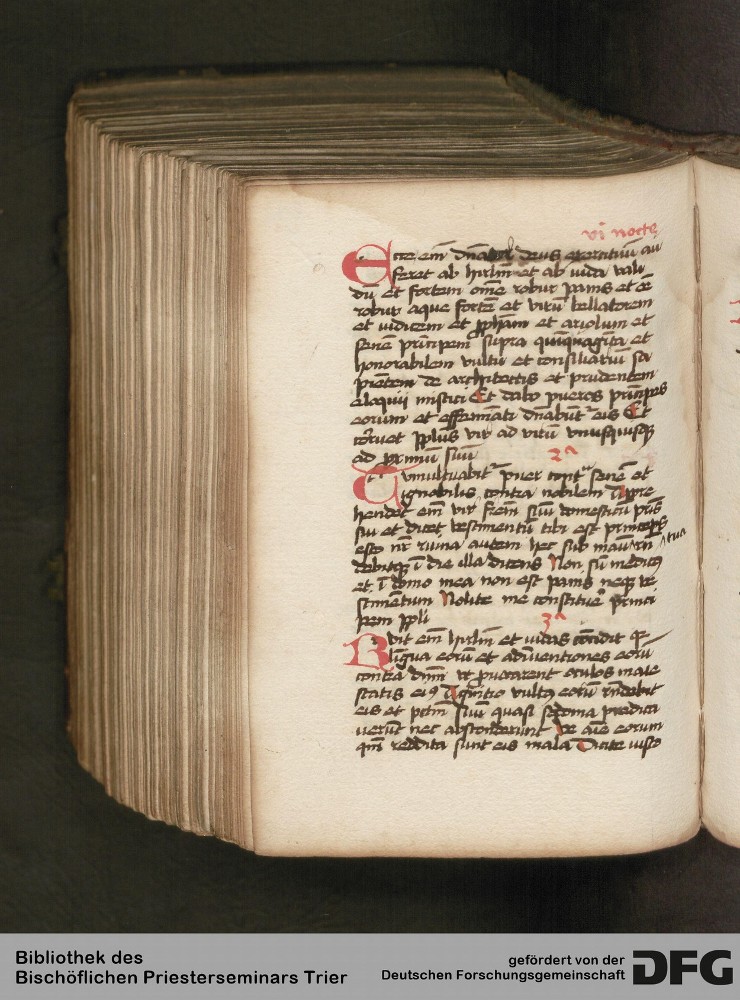 vi nocte
Ecce em̄ dn̄ator deus exercituū au
feret ab hrlm̄ et ab iuda vali
dū et fortem om̄e robur panis et oē
robur aque fortē et virū bellatorem
et iudicem et ꝓpham et ariolum et
senē principem supra quīquagīta et
honorabilem vultu et consiliariū sa
pientem de architectis et prudentem
elaquii mistici Et dabo pueros prīcipes
eorum et effemīati dn̄abūt eis Et
corruet ppl̄us vir ad virū vnusquisqꝫ
ad proximū suū
2ᵃ
Tumultuabit᷑ puer cont᷑ senē et
ignobilis contra nobilem Appre
hendet em̄ vir fr̄em suū domesticū pr̄is
sui et dicet vestimentū tibi est princeps
esto nr̄ ruina autem hec sub manu tua
debitqꝫ ī die illa dicens Non sū medicꝰ
et ī domo mea non est panis neqꝫ ve
stimentum Nolite me constitue᷑ princi
pem ppl̄i
3ᵃ
Rudit em̄ hrlm̄ et iudas cōcidit qꝛ
līgua eorū et adīuentiones eorū
contra dn̄m vt ꝓuocarent oculos maie
statis eiꝰ Agnitio vultꝰ eorū rn̄debit
eis et pctm̄ suū quasi sodoma predica
uerūt nec absconderunt Ve aīe eorum
qm̄ reddita sunt eis mala Dicite iusto
Bibliothek des
Bischöflichen Priesterseminars Trier
gefördert von der
Deutschen Forschungsgemeinschaft
DFG